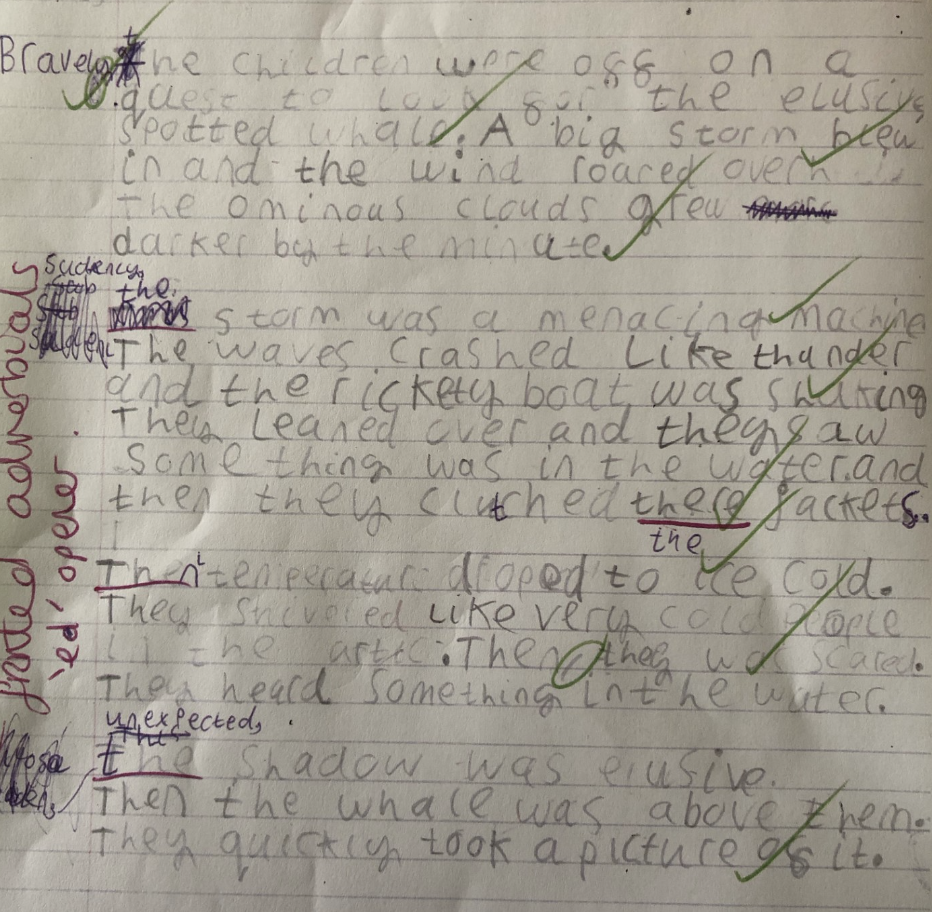 Bravely, the children were off on a
quest to look for the elusive
spotted whale. A big storm blew
in and the wind roared over
the ominous clouds grew
darker by the minate.
Sudency,
the
storm was a menacing machine
The waves crashed like thunder
and the rickety boat was shaking
They leaned over and they saw
Something was in the water.and
then they clutched there jackets.
the
Then temperatur droped to ice cold.
They shivered like very cold people
in the artic.Then they was scared.
They heard something in the water.
unexpected,
the shadow was elusive.
Then the whale was above them.
They quickly took a picture of it.
fronted adverbials
'ed' opener